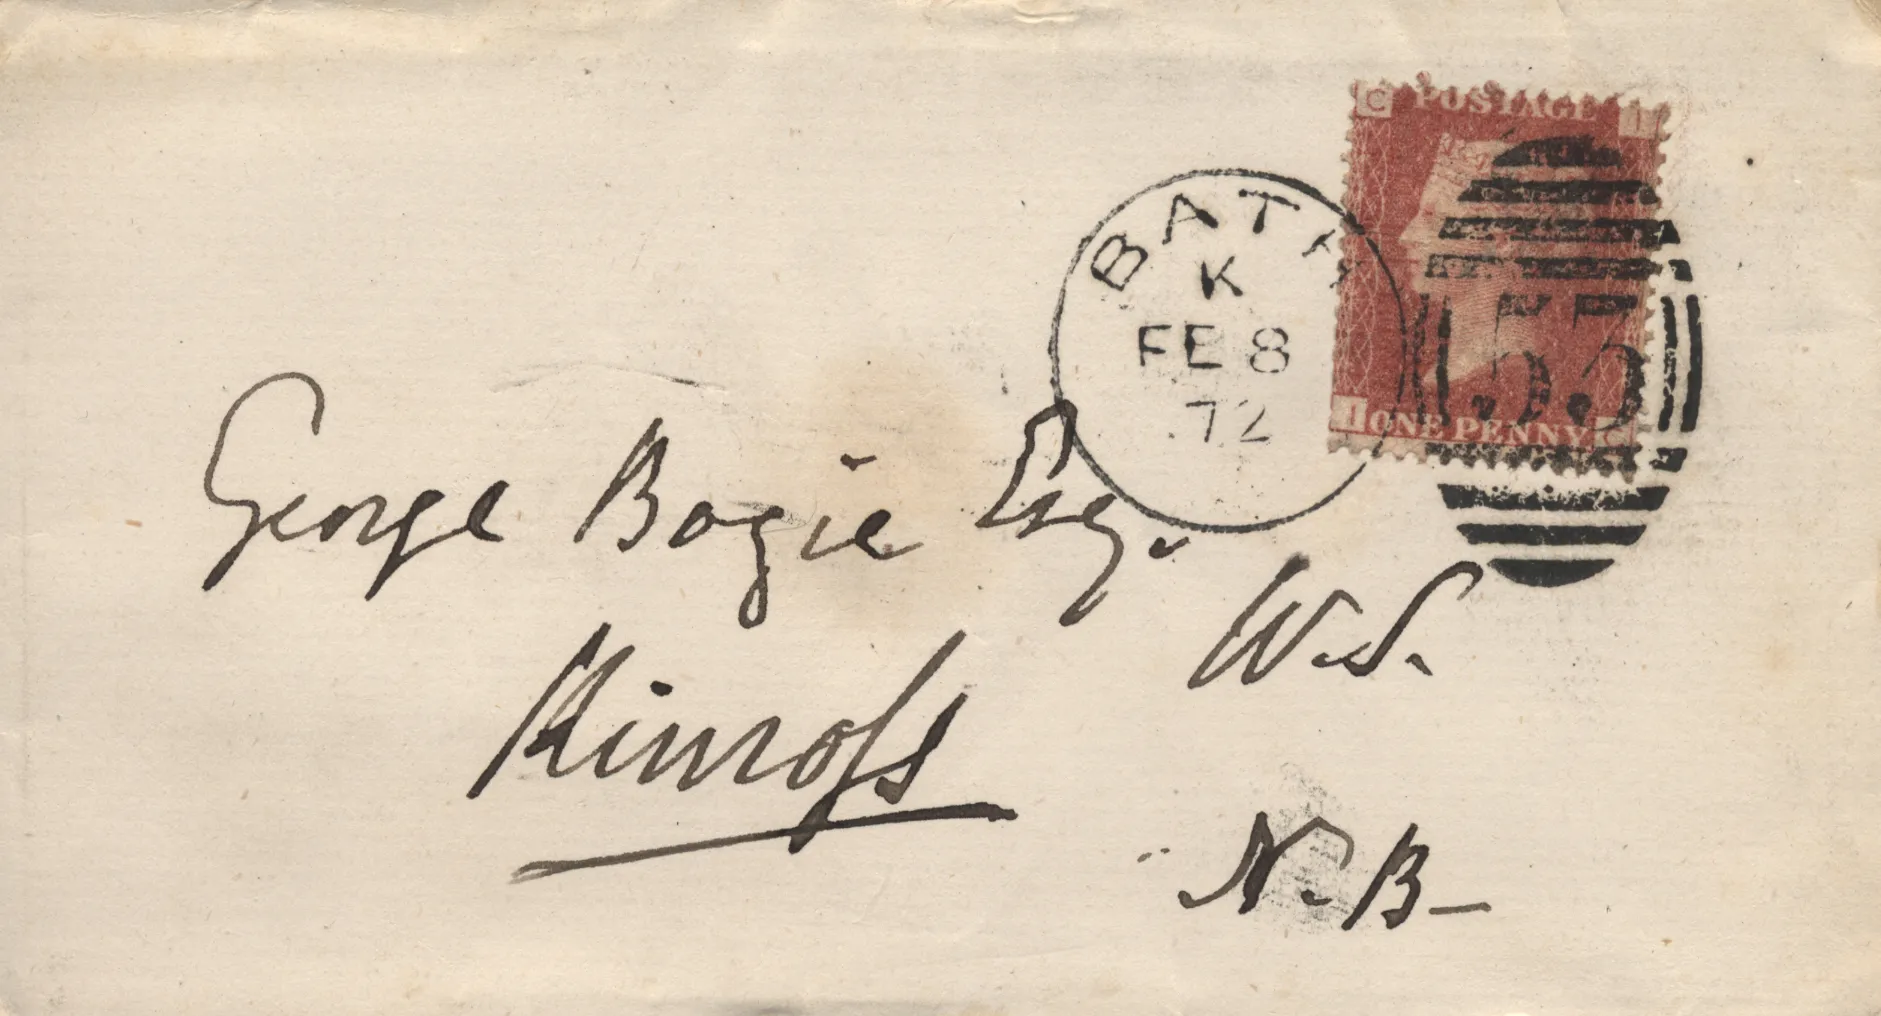 C POSTAGE I
BATH
K
FE 8
72
53
I ONE PENNY C
George Bogie Esq.
W.S.
Kinross
N.B-